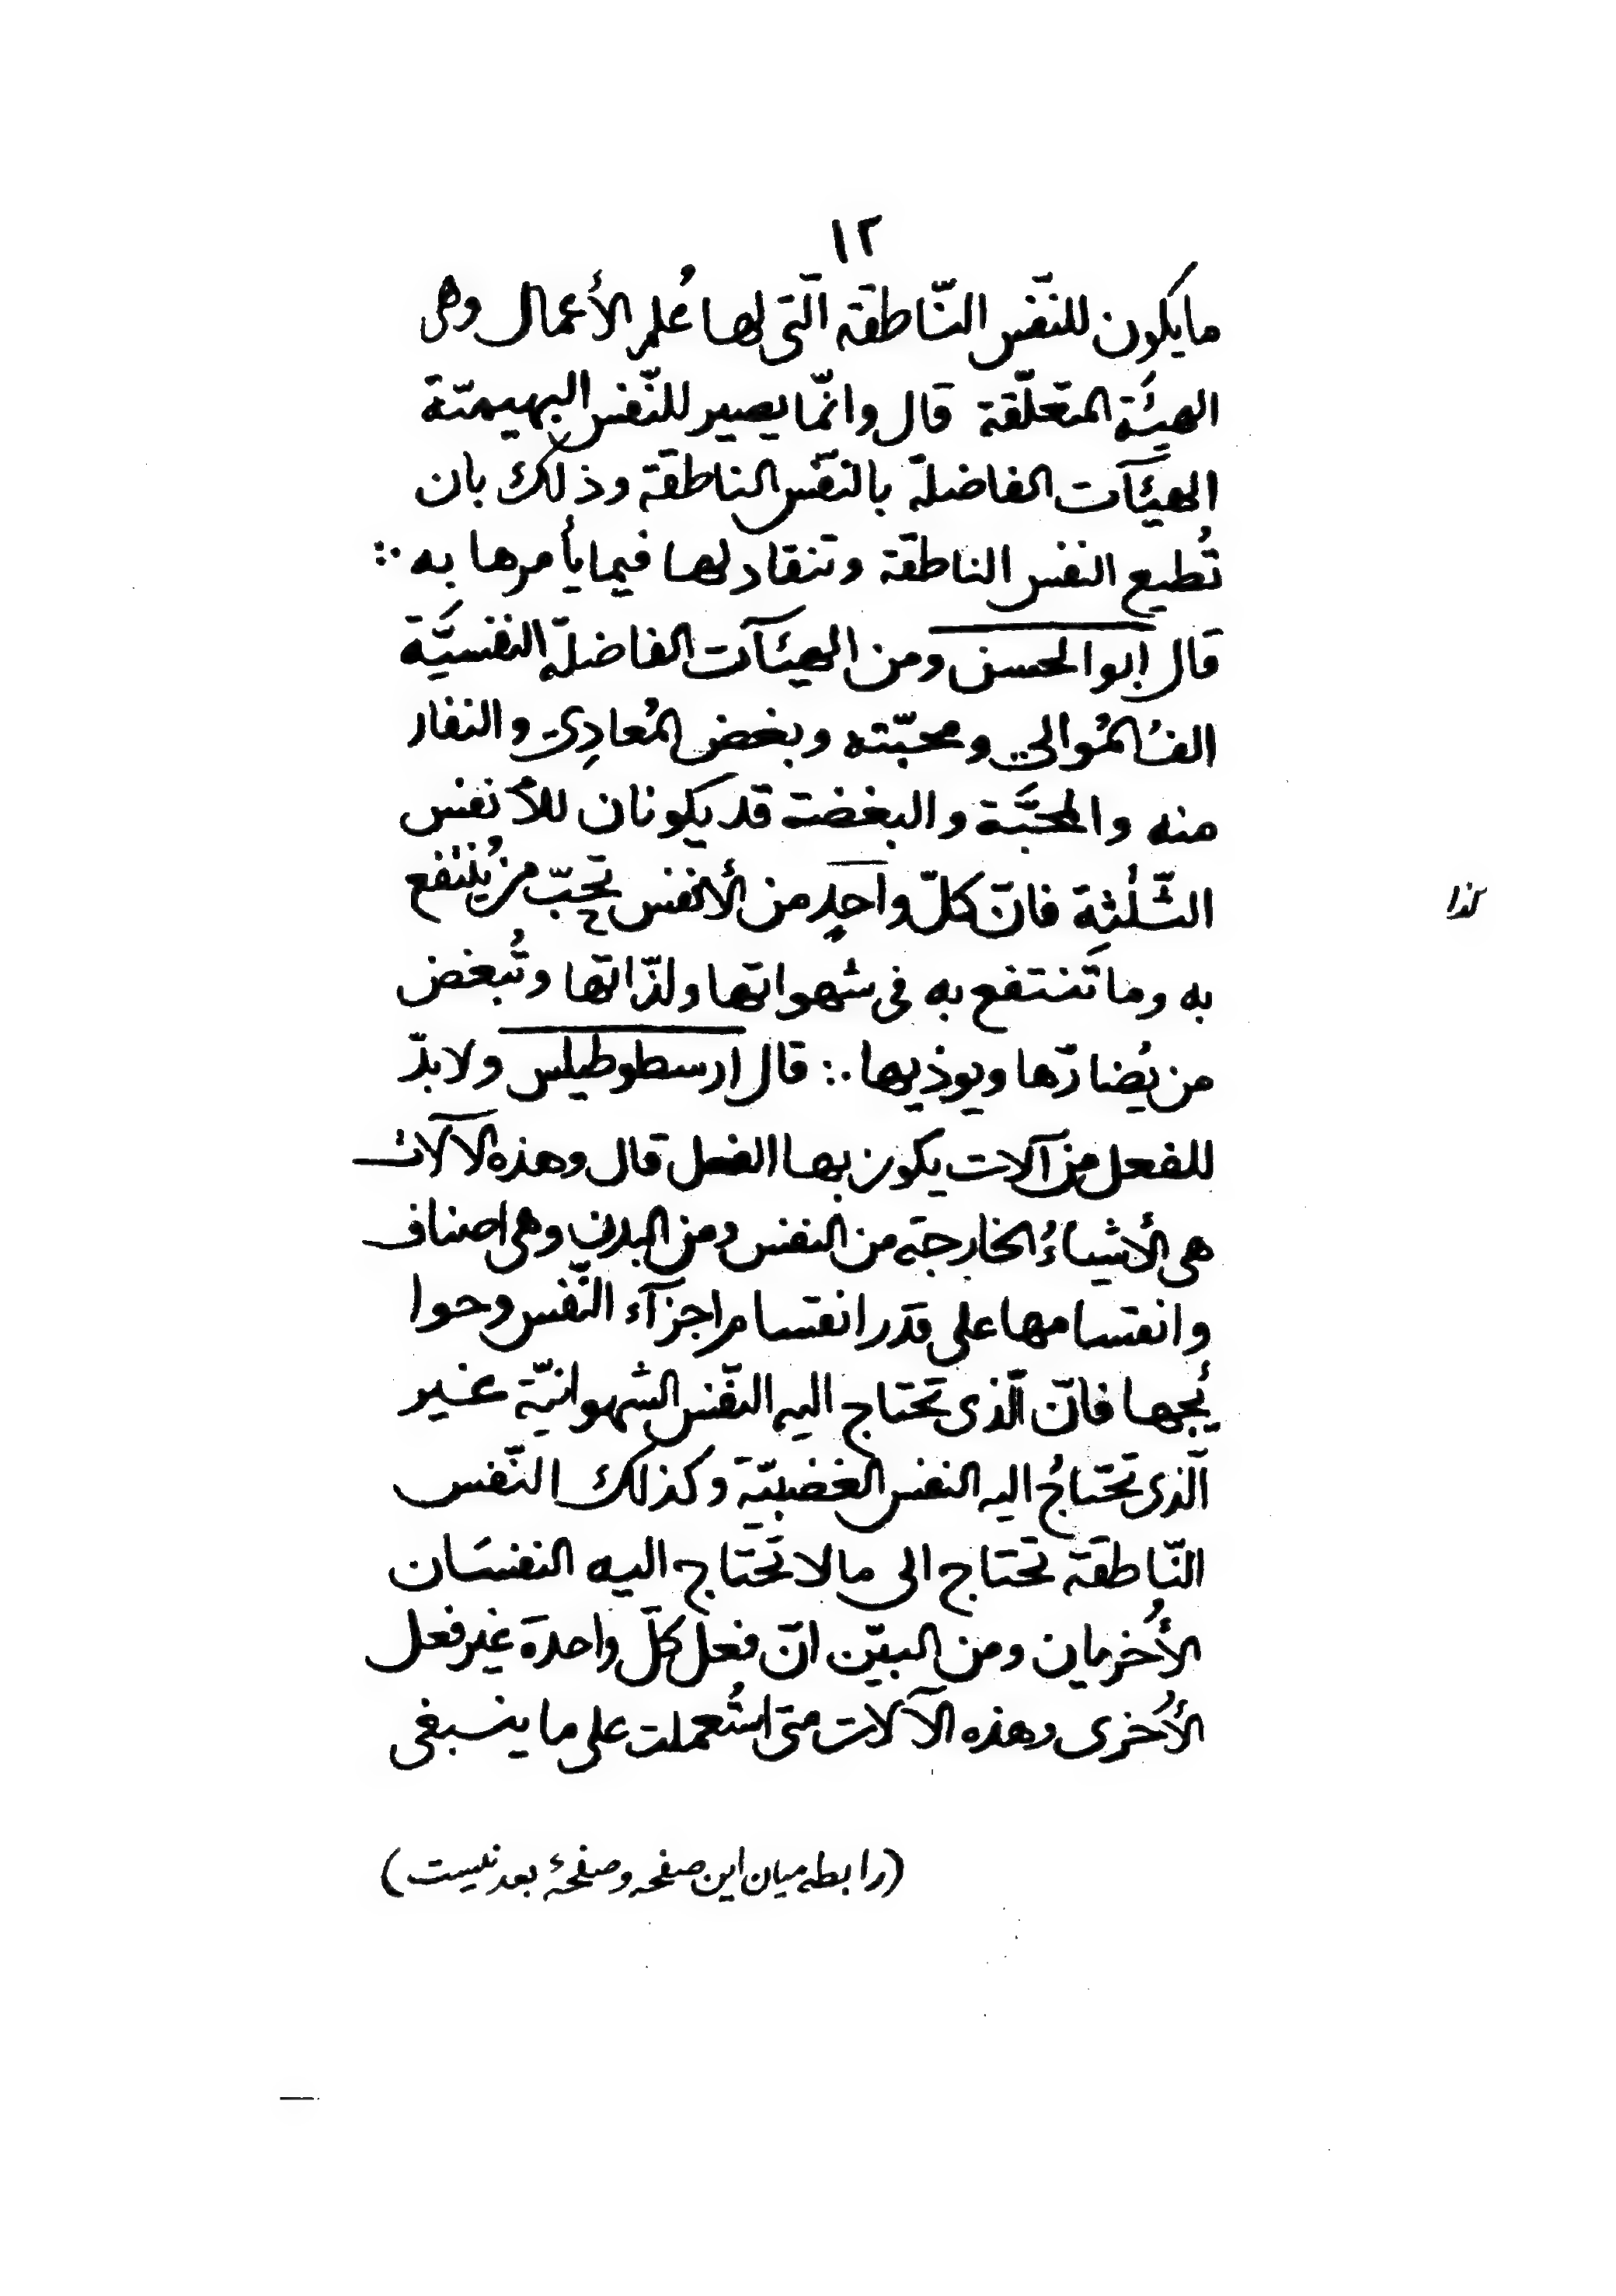 ١٢
ما يكون للنّفس النّاطقة الّتى لها عُلم الأعمال وهى
الهيئة المتعلّقة قال وانّما يصير للنّفس البهيميّة
الهيئآت الفاضلة بالنّفس الناطقة وذلك بان
تُطيع النفس الناطقة وتنقاد لها فيما يأمرها به ∴
قال ابو الحسن ومن الهيئآت الفاضلة النفسيّة
الفُ المُوالي ومحبّته وبغض المُعادِي والنفار
منه والمحبَّة والبغضة قد يكونان للأنفس
الثّلٰثة فانّ كلّ واحدٍ من الأنفس تحبّ من يُنتفع
به وما تَنتفع به فى شهواتها ولذّاتها وتُبغض
من يُضارّها ويوذيها ∴ قال ارسطوطيلس ولا بدّ
للفعل من آلات يكون بها الفعل قال وهذه الآلات
هى الأشياءُ الخارجة من النفس ومن البدن وهى اصناف
وانقسامها على قدر انقسام اجزآء النّفس وحوا
يُجها فانّ الّذى تحتاج اليه النّفس الشهوانيّة غير
الّذى تحتاجُ اليه النفس الغضبيّة وكذلك النّفس
النّاطقة تحتاج الى ما لا تحتاج اليه النفسَان
الأُخريان ومن البيّن انّ فعل كلّ واحدة غير فعل
الأُخرى وهذه الآلات متى استُعملت على ما ينبغى
كذا
(رابطه ميان اين صفحه و صفحهٔ بعد نيست)